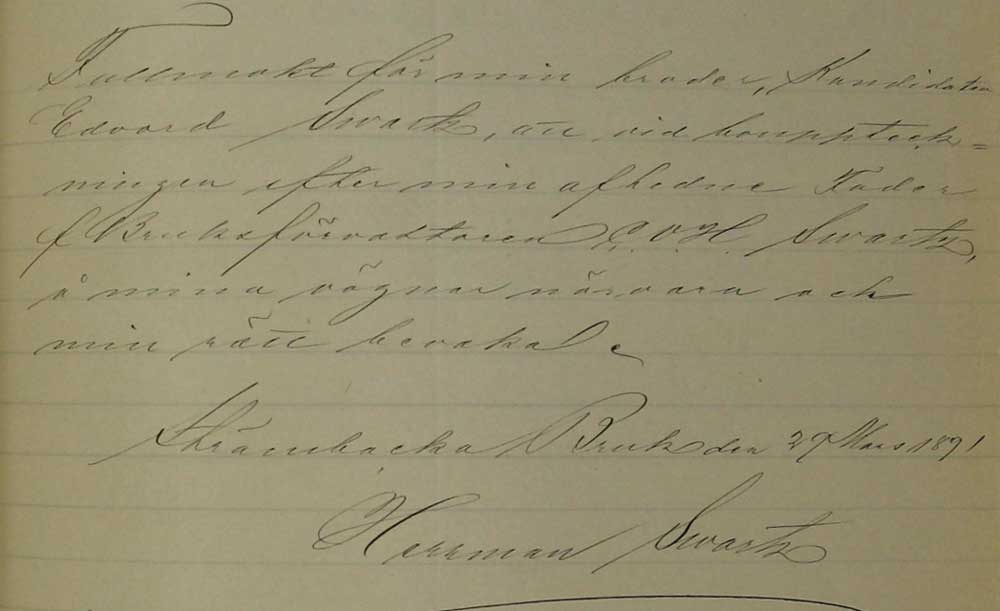 Fullmakt för min broder, Kandidaten
Edvard Swartz, att vid bouppteck=
ningen efter min aflidne Fader
f Bruksförvaltaren C. O. H. Swartz,
å mina vägnar närvara och
min rätt bevaka.
Strömbacka Bruk den 29 Mars 1891
Herrman Swartz